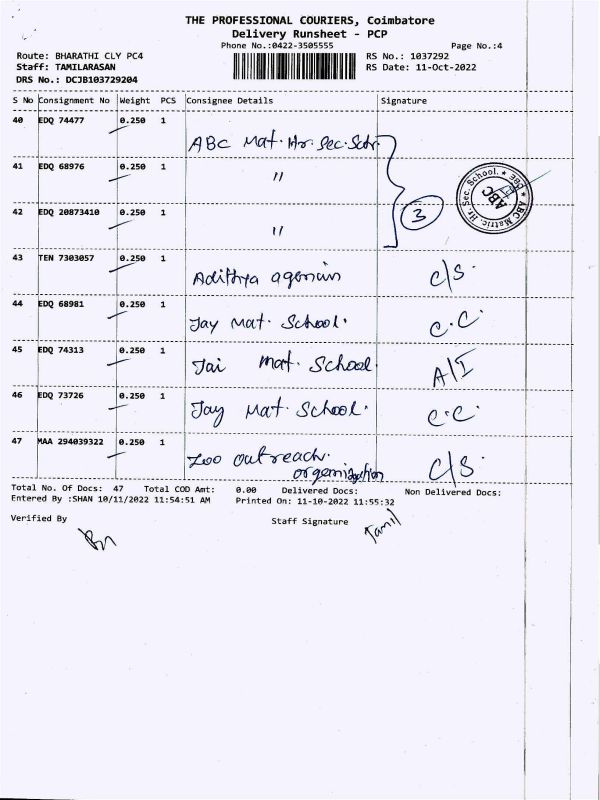 THE PROFESSIONAL COURIERS, Coimbatore
Delivery Runsheet - PCP
Phone No.:0422-3505555 Page No.:4
Route: BHARATHI CLY PC4 RS No.: 1037292
Staff: TAMILARASAN RS Date: 11-Oct-2022
DRS No.: DCJB103729204
S No Consignment No Weight PCS Consignee Details Signature
40 EDQ 74477 0.250 1 ABC Mat. Hr. Sec. Sch.
41 EDQ 68976 0.250 1 "
42 EDQ 20873410 0.250 1 " 3
ABC Matric. Hr. Sec. School.
ABC
43 TEN 7303057 0.250 1 Adithya C/S.
44 EDQ 68981 0.250 1 Jay Mat. School. C.C.
45 EDQ 74313 0.250 1 Jai Mat. School. A/I
46 EDQ 73726 0.250 1 Jay Mat. School. C.C.
47 MAA 294039322 0.250 1 Zoo outreach. C/S.
organization
Total No. Of Docs: 47 Total COD Amt: 0.00 Delivered Docs: Non Delivered Docs:
Entered By :SHAN 10/11/2022 11:54:51 AM Printed On: 11-10-2022 11:55:32
Verified By Staff Signature Tamil